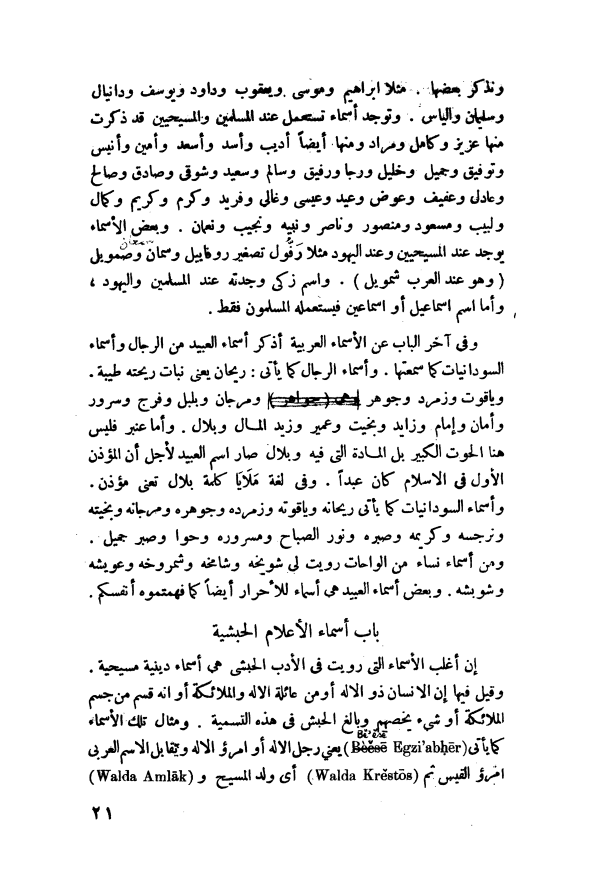 ونذكر بعضها . مثلا ابراهيم وموسى ويعقوب وداود ويوسف ودانيال
وسليمان والياس . وتوجد أسماء تستعمل عند المسلمين والمسيحيين قد ذكرت
منها عزيز وكامل ومراد ومنها أيضاً أديب وأسد وأسعد وأمين وأنيس
وتوفيق وجميل وخليل ورجا ورفيق وسالم وسعيد وشوقى وصادق وصالح
وعادل وعفيف وعوض وعيد وعيسى وغالى وفريد وكرم وكريم وكمال
ولبيب ومسعود ومنصور وناصر ونبيه ونجيب ونعمان . وبعض الأسماء
يوجد عند المسيحيين وعند اليهود مثلا رَفُّول تصغير روفاييل وسمان وصمويل
( وهو عند العرب شمويل ) . واسم زكى وجدته عند المسلمين واليهود ،
وأما اسم اسماعيل أو اسماعين فيستعمله المسلمون فقط .
وفى آخر الباب عن الأسماء العربية أذكر أسماء العبيد من الرجال وأسماء
السودانيات كما سمعتها . وأسماء الرجال كما يأتى : ريحان يعنى نبات ريحته طيبة .
وياقوت وزمرد وجوهر وهى (جواهر) ومرجان وبلبل وفرج وسرور
وأمان وإمام وزايد وبخيت وعمير وزيد المال وبلال . وأما عنبر فليس
هنا الحوت الكبير بل المادة التى فيه وبلال صار اسم العبيد لأجل أن المؤذن
الأول فى الاسلام كان عبداً . وفى لغة مَلَايَا كلمة بلال تعنى مؤذن .
وأسماء السودانيات كما يأتى ريحانه وياقوته وزمرده وجوهره ومرجانه وبخيته
ونرجسه وكريمه وصبره ونور الصباح ومسروره وحوا وصبر جميل .
ومن أسماء نساء من الواحات رويت لى شويخه وشامخه وشمروخه وعويشه
وشويشه . وبعض أسماء العبيد هى أسماء للأحرار أيضاً كما فهمتموه أنفسكم .
باب أسماء الأعلام الحبشية
إن أغلب الأسماء التى رويت فى الأدب الحبشى هى أسماء دينية مسيحية .
وقيل فيها إن الانسان ذو الاله أو من عائلة الاله والملائكة أو انه قسم من جسم
الملائكة أو شىء يخصهم وبالغ الحبش فى هذه التسمية . ومثال تلك الأسماء
كما يأتى (Bĕ'ĕsē Egzi'abḥēr) يعنى رجل الاله أو امرؤ الاله ويتقابل الاسم العربى
امرؤ القيس ثم (Walda Krĕstōs) أى ولد المسيح و (Walda Amlāk)
٢١